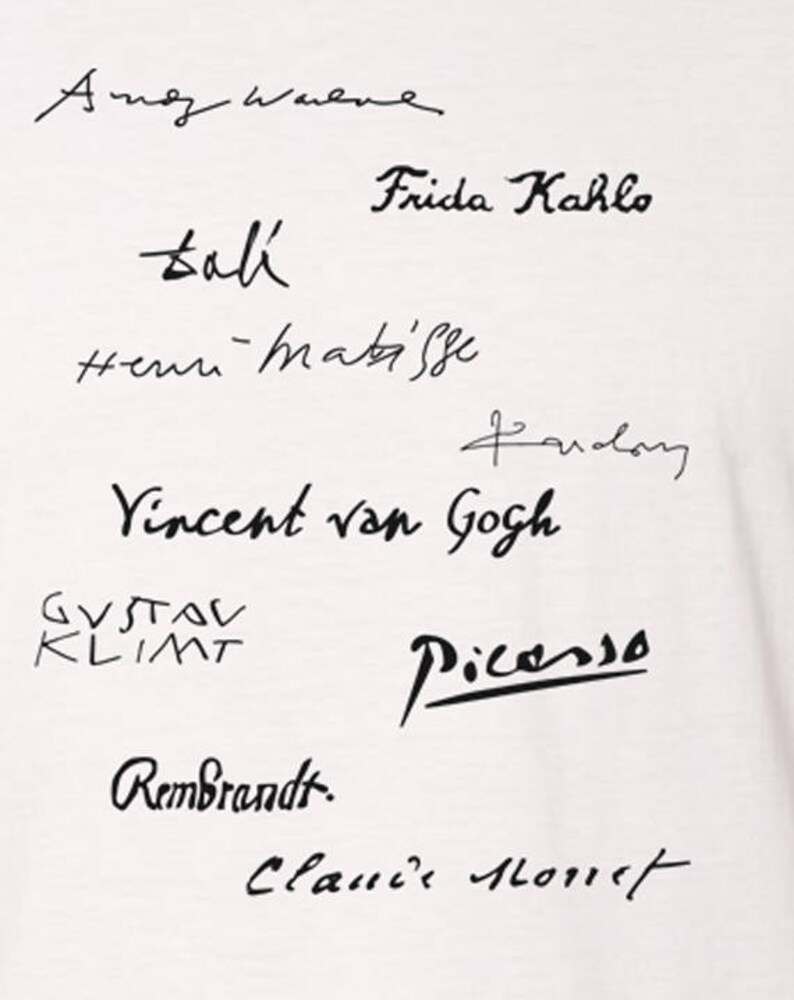 Andy Warhol
Frida Kahlo
Dalí
Henri Matisse
Kandinsky
Vincent van Gogh
GUSTAV
KLIMT
Picasso
Rembrandt.
Claude Monet